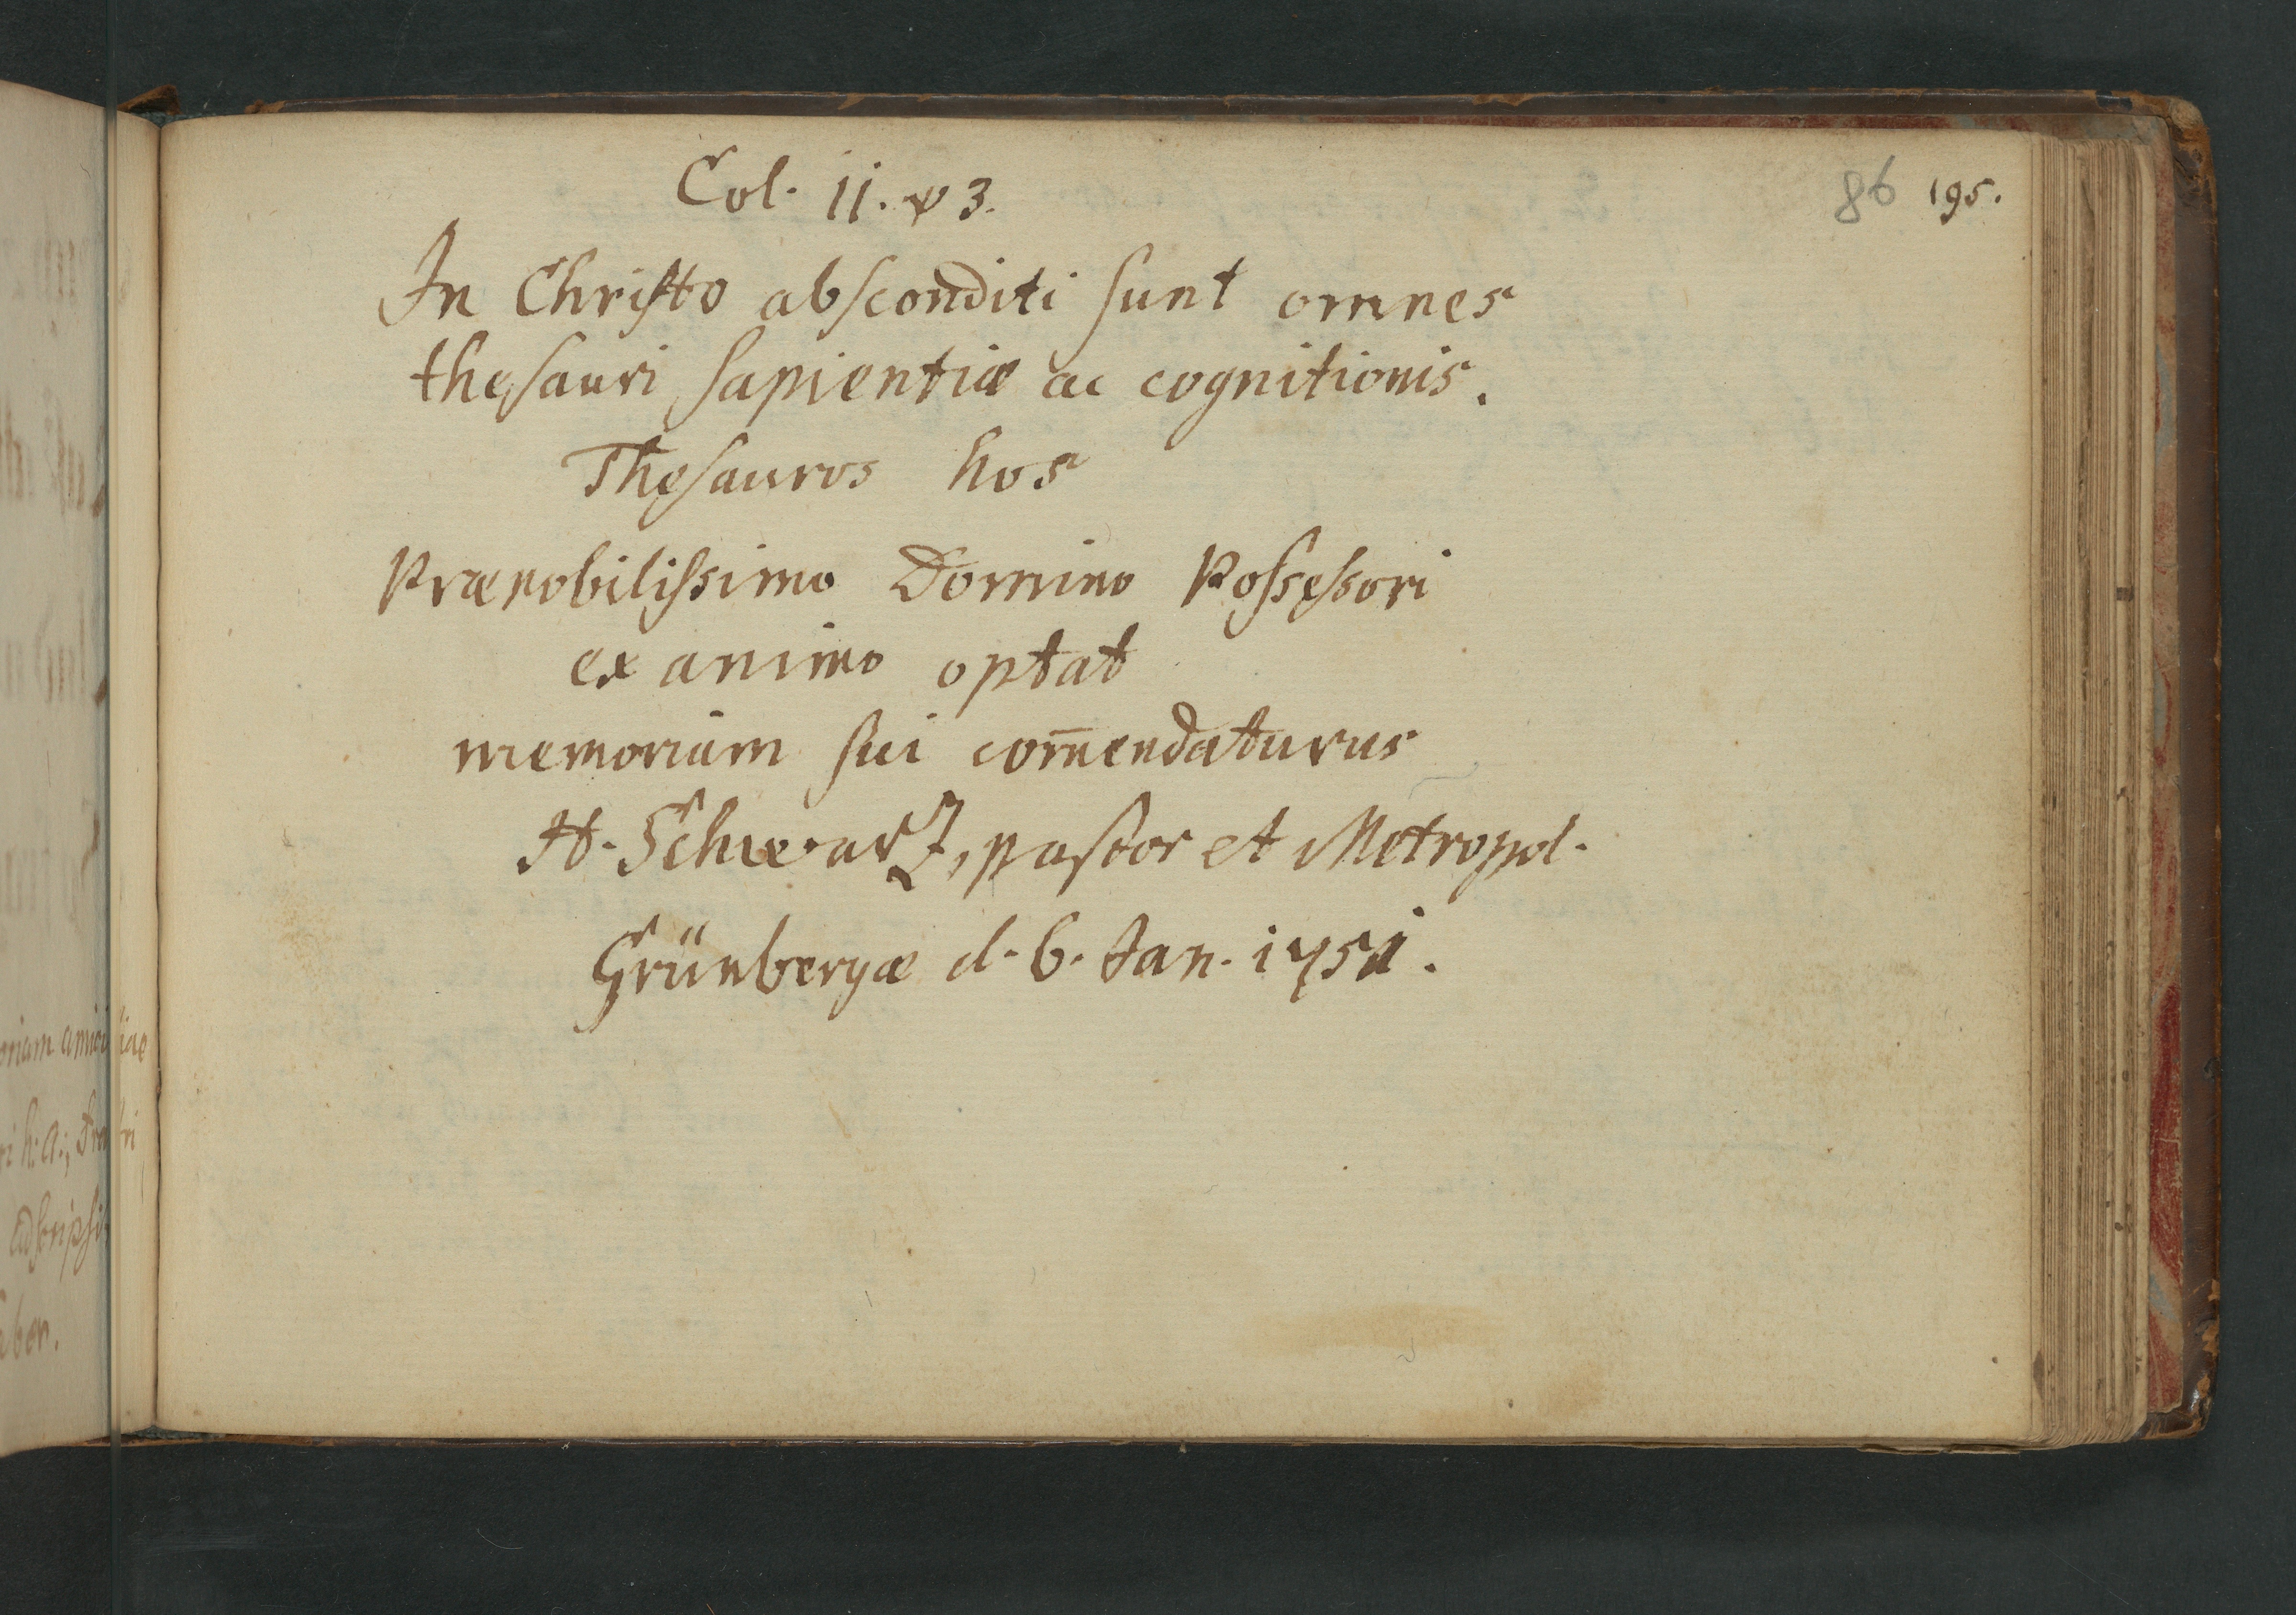 Col. II. v 3.
86 195.
In Christo absconditi sunt omnes
thesauri sapientiæ ac cognitionis.
Thesauros hos
Prænobilissimo Domino Possessori
ex animo optat
memoriam sui com̄endaturus
H. Schwartz, pastor et Metropol.
Grünbergæ d. 6. Jan. 1751.